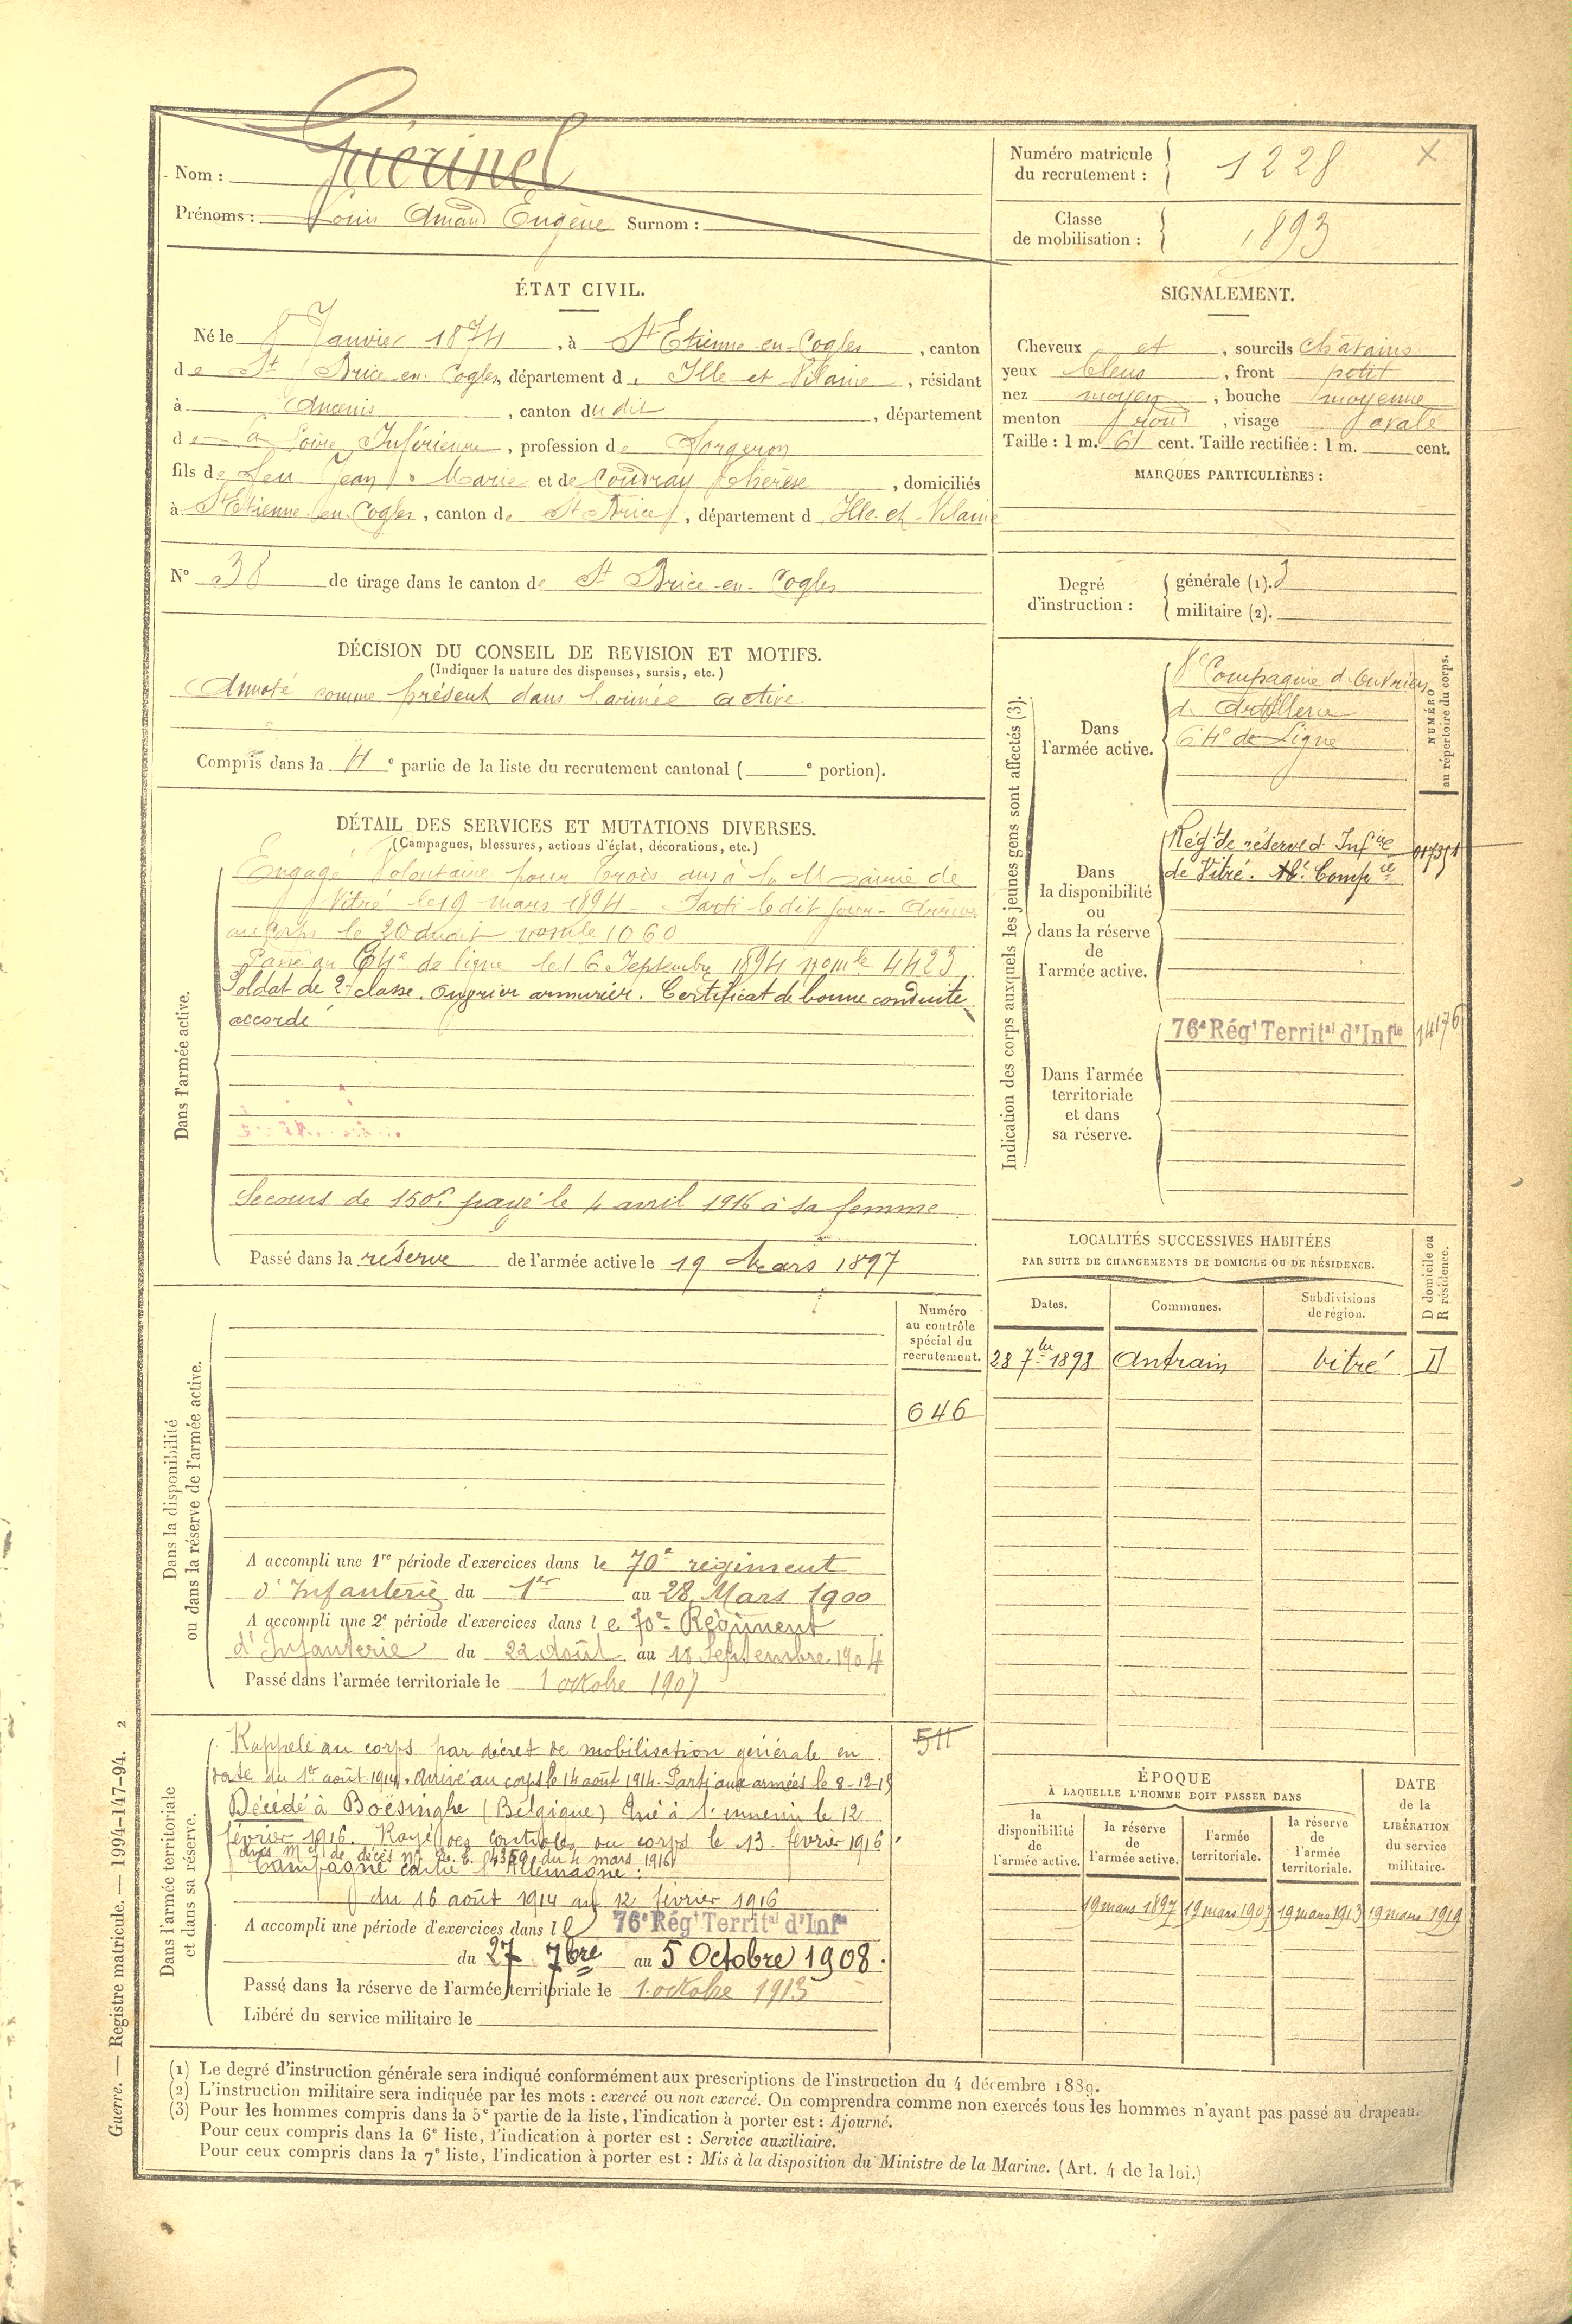 Nom : Guérinel
Prénoms : Louis Amand Eugène Surnom :
Numéro matricule du recrutement : 1228 X
Classe de mobilisation : 1893
ÉTAT CIVIL.
Né le 8 Janvier 1874, à St Etienne-en-Cogles, canton
de St Brice en Cogles, département d Ille et Vilaine, résidant
à Ancenis, canton du dit, département
de la Loire Inférieure, profession de Forgeron
fils de feu Jean Marie et de Coudray Thérèse, domiciliés
à St Etienne en Cogles, canton de St Brice, département d Ille-et-Vilaine
N° 38 de tirage dans le canton de St Brice-en-Cogles
SIGNALEMENT.
Cheveux et, sourcils châtains
yeux bleus, front petit
nez moyen, bouche moyenne
menton rond, visage ovale
Taille : 1 m. 61 cent. Taille rectifiée : 1 m. cent.
MARQUES PARTICULIÈRES :
Degré d'instruction :
générale (1). 3
militaire (2).
DÉCISION DU CONSEIL DE REVISION ET MOTIFS.
(Indiquer la nature des dispenses, sursis, etc.)
Annoté comme présent dans l'armée active
Compris dans la 4e partie de la liste du recrutement cantonal ( e portion).
Indication des corps auxquels les jeunes gens sont affectés (3).
NUMÉRO au répertoire du corps.
Dans l'armée active.
8e Compagnie d'Ouvriers
d'Artillerie
64e de Ligne
Dans la disponibilité ou dans la réserve de l'armée active.
Régt de réserve d'Infie
de Vitré. Compie
Dans l'armée territoriale et dans sa réserve.
76e Régt Territal d'Infie 14176
DÉTAIL DES SERVICES ET MUTATIONS DIVERSES.
(Campagnes, blessures, actions d'éclat, décorations, etc.)
Dans l'armée active.
Engagé Volontaire pour trois ans à la Mairie de
Vitré le 19 mars 1894 - Parti le dit jour - Arrivé
au Corps le 20 dudit no mle 1060
Passé au 64e de ligne le 16 Septembre 1894 no mle 4423
Soldat de 2e classe. Ouvrier armurier. Certificat de bonne conduite
accordé
Secours de 150f payé le 4 avril 1916 à sa femme
Passé dans la réserve de l'armée active le 19 Mars 1897
LOCALITÉS SUCCESSIVES HABITÉES
PAR SUITE DE CHANGEMENTS DE DOMICILE OU DE RÉSIDENCE.
Dates. Communes. Subdivisions de région. D domicile ou R résidence.
28 7bre 1898 Antrain Vitré D
Dans la disponibilité ou dans la réserve de l'armée active.
Numéro au contrôle spécial du recrutement.
646
A accompli une 1re période d'exercices dans le 70e régiment
d'Infanterie du 1er au 28 Mars 1900
A accompli une 2e période d'exercices dans le 70e Régiment
d'Infanterie du 22 Août au 18 Septembre 1904
Passé dans l'armée territoriale le 1 octobre 1907
Dans l'armée territoriale et dans sa réserve.
511
Rappelé au corps par décret de mobilisation générale en
date du 1er août 1914. Arrivé au corps le 14 août 1914. Parti aux armées le 8-12-15
Décédé à Boësinghe (Belgique) tué à l'ennemi le 12
février 1916. Rayé des contrôles du corps le 13 février 1916
du 4 mars 1916
Campagne contre l'Allemagne :
du 16 août 1914 au 12 février 1916
A accompli une période d'exercices dans le 76e Régt Territal d'Infie
du 27 7bre au 5 Octobre 1908.
Passé dans la réserve de l'armée territoriale le 1 octobre 1913
Libéré du service militaire le
ÉPOQUE
À LAQUELLE L'HOMME DOIT PASSER DANS
la disponibilité de l'armée active. la réserve de l'armée active. l'armée territoriale. la réserve de l'armée territoriale.
DATE de la LIBÉRATION du service militaire.
19 mars 1897 19 mars 1907 19 mars 1913 19 mars 1919
(1) Le degré d'instruction générale sera indiqué conformément aux prescriptions de l'instruction du 4 décembre 1889.
(2) L'instruction militaire sera indiquée par les mots : exercé ou non exercé. On comprendra comme non exercés tous les hommes n'ayant pas passé au drapeau.
(3) Pour les hommes compris dans la 5e partie de la liste, l'indication à porter est : Ajourné.
Pour ceux compris dans la 6e liste, l'indication à porter est : Service auxiliaire.
Pour ceux compris dans la 7e liste, l'indication à porter est : Mis à la disposition du Ministre de la Marine. (Art. 4 de la loi.)
Guerre. — Registre matricule. — 1994-147-94. 2